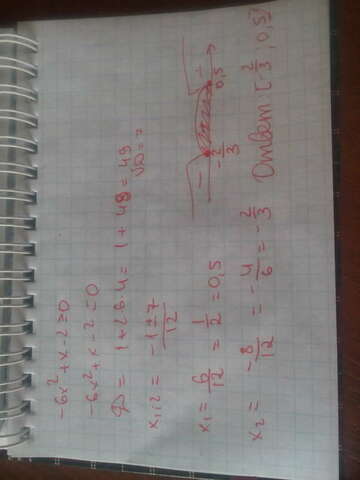 -6x²+x-2=0
-6x²+x-2=0
D = 1+26·4 = 1+48=49
√D = 7
x₁,₂ = -1±7/12
x₁ = 6/12 = 1/2 = 0,5
x₂ = -8/12 = -4/6 = -2/3
- -
-2/3 0,5
Ответ: [-2/3; 0,5]